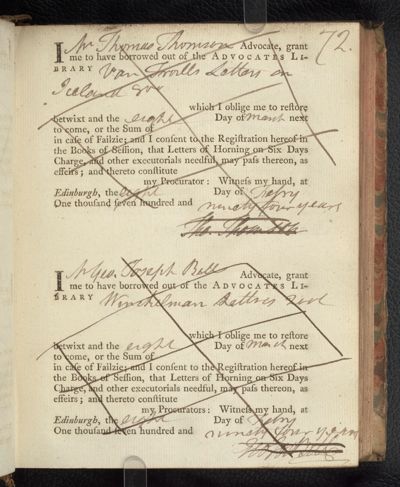 72.
I Mr Thomas Thomson Advocate, grant
me to have borrowed out of the ADVOCATES LI-
BRARY Van Troills Letters on
Iceland 8vo
which I oblige me to reſtore
betwixt and the eight Day of March next
to come, or the Sum of
in caſe of Failzie; and I conſent to the Regiſtration hereof in
the Books of Seſſion, that Letters of Horning on Six Days
Charge, and other executorials needful, may paſs thereon, as
effeirs; and thereto conſtitute
my Procurator: Witneſs my hand, at
Edinburgh, the eight Day of Febry
One thouſand ſeven hundred and ninety four years
Tho. Thomson
I Mr Geo. Joseph Bell Advocate, grant
me to have borrowed out of the ADVOCATES LI-
BRARY Winckelman Lettres
which I oblige me to reſtore
betwixt and the eight Day of March next
to come, or the Sum of
in caſe of Failzie; and I conſent to the Regiſtration hereof in
the Books of Seſſion, that Letters of Horning on Six Days
Charge, and other executorials needful, may paſs thereon, as
effeirs; and thereto conſtitute
my Procurators: Witneſs my hand, at
Edinburgh, the eight Day of Febry
One thouſand ſeven hundred and ninety four years